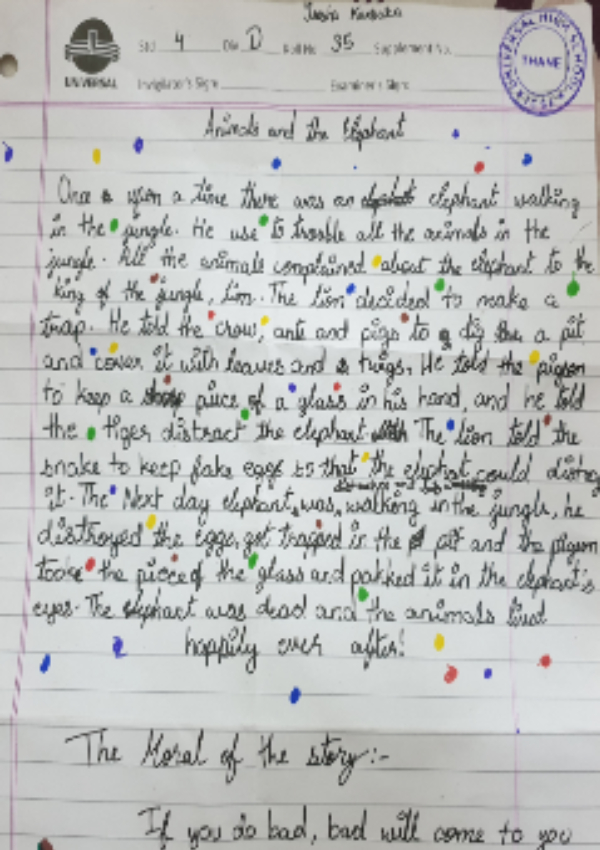 UNIVERSAL
Std 4 Div D Roll No 35 Supplement No.
Invigilator's Sign Examiner's Sign
UNIVERSAL HIGH SCHOOL
THANE
Animals and the Elephant
Once upon a time there was an elephant walking
in the jungle. He use to trouble all the animals in the
jungle. All the animals complained about the elephant to the
king of the jungle, lion. The lion decided to make a
trap. He told the crow, ants and pigs to dig the a pit
and cover it with leaves and twigs. He told the pigeon
to keep a piece of a glass in his hand, and he told
the tiger distract the elephant The lion told the
snake to keep fake eggs so that the elephant could distroy
it. The Next day elephant, was, walking in the jungle, he
distroyed the eggs, got trapped in the pit and the pigeon
tooke the piece of the glass and pokked it in the elephant's
eyes. The elephant was dead and the animals lived
happily ever after!
The Moral of the story:-
If you do bad, bad will come to you